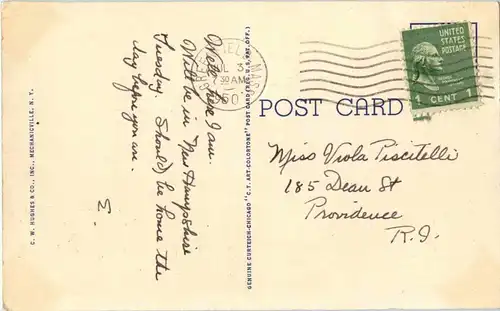 Well here I am.
Will be in New Hampshire
Tuesday. Should be home the
day before you are.
E.
C. W. HUGHES & CO., INC., MECHANICVILLE, N. Y.
GENUINE CURTEICH-CHICAGO "C. T. ART-COLORTONE" POST CARD (REG. U. S. PAT. OFF.)
MASS
30 AM
POST CARD
UNITED STATES
POSTAGE
1 CENT 1
Miss Viola Piscitelli
185 Dean St
Providence
R.I.